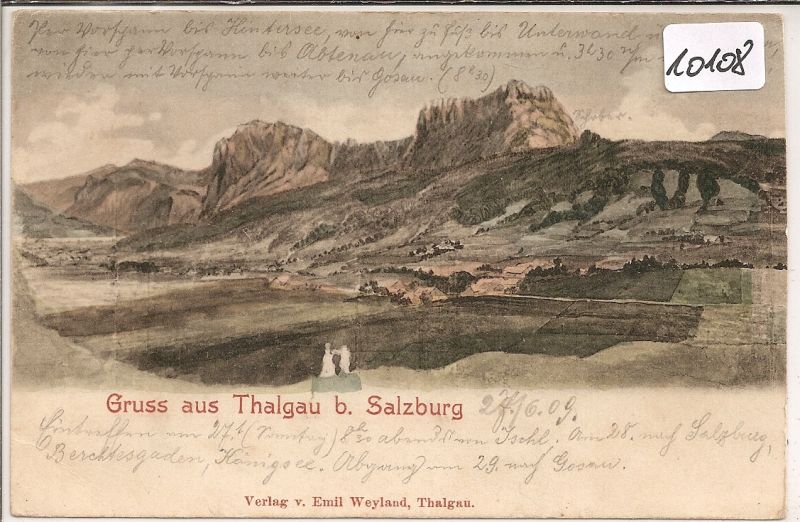 Per Vorspann bis Hintersee, von hier zu Fuß bis Unterwand u.
von hier per Vorspann bis Abtenau, angekommen u. 3h30
wieder mit Vorspann weiter bis Gosau. (8h30)
10108
Schober.
Gruss aus Thalgau b. Salzburg
27./6.09.
Eintreffen am 27.t (Samstag) 8h30 abends von Ischl. Am 28. nach Salzburg,
Berchtesgaden, Königsee. Abgang am 29. nach Gosau.
Verlag v. Emil Weyland, Thalgau.